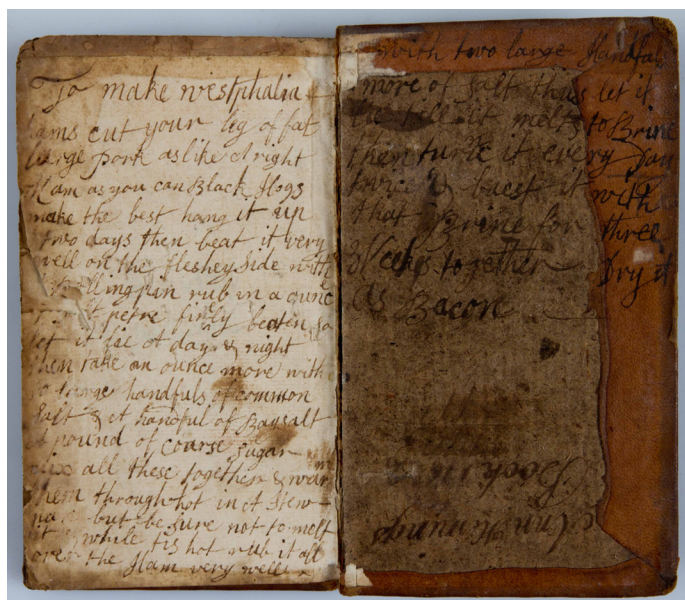 To make westphalia
hams cut your leg of fat
large pork as like A right
Ham as you can Black Hogs
make the best hang it up
two days then beat it very
well on the fleshey side with
Rollingpin rub in a ounc
petre finly beaten so
let it lie A day & night
then take an ounce more with
large handfuls of common
Salt & A handful of Baysalt
A pound of coarse Sugar
mix all these together & warm
them through hot in A Stew
pan but be sure not to melt
it while tis hot rub it all
over the Ham very well
with two large Handful
more of salt thus let it
lie till it melts to Brine
then turn it every Day
twice & baest it with
that Brine for three
Weeks together Dry it
as Bacon
Ann Hennings
Book